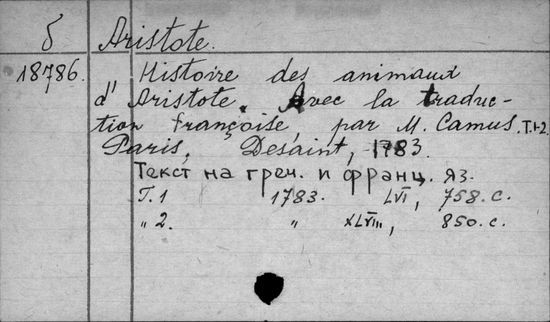 δ Aristote.
18786. Histoire des animaux
d'Aristote. Avec la traduc-
tion françoise, par M. Camus. T.1-2.
Paris, Desaint, 1783.
Текст на греч. и франц. яз.
Т.1 1783. LVI, 758. с.
„ 2. „ XLVIII, 850. с.